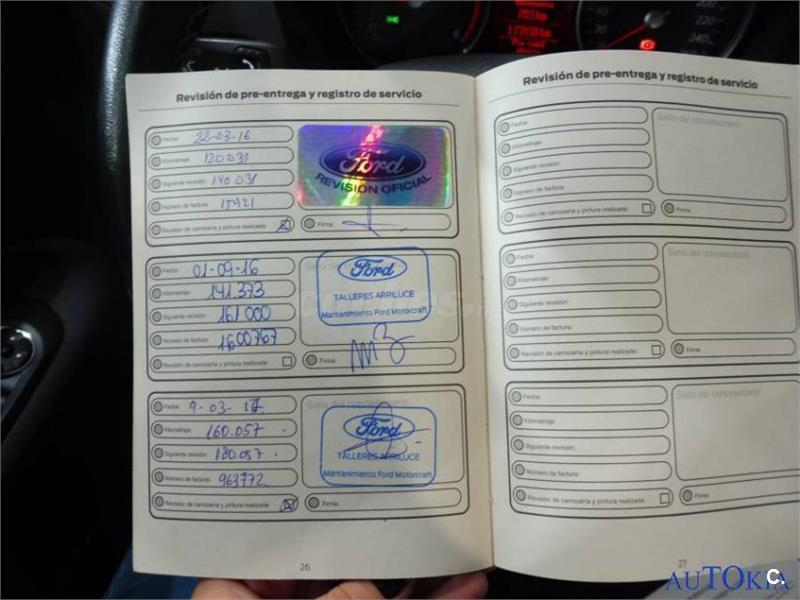 Revisión de pre-entrega y registro de servicio
Fecha: 22-03-16
Kilometraje: 120.031
Siguiente revisión: 140.031
Número de factura:
Revisión de carrocería y pintura realizada:
Firma:
Ford
REVISIÓN OFICIAL
Fecha: 01-09-16
Kilometraje: 141.373
Siguiente revisión: 161.000
Número de factura: 1600767
Revisión de carrocería y pintura realizada:
Firma:
Ford
TALLERES ARRILUCE
Mantenimiento Ford Motorcraft
Fecha: 9-03-17
Kilometraje: 160.057
Siguiente revisión: 180.057
Número de factura: 963772
Revisión de carrocería y pintura realizada:
Firma:
Sello del concesionario
Ford
TALLERES ARRILUCE
Mantenimiento Ford Motorcraft
26
Revisión de pre-entrega y registro de servicio
Fecha:
Kilometraje:
Siguiente revisión:
Número de factura:
Revisión de carrocería y pintura realizada:
Sello del concesionario
Firma:
Fecha:
Kilometraje:
Siguiente revisión:
Número de factura:
Revisión de carrocería y pintura realizada:
Sello del concesionario
Firma:
Fecha:
Kilometraje:
Siguiente revisión:
Número de factura:
Revisión de carrocería y pintura realizada:
Sello del concesionario
Firma:
27
AUTOKIA
C.